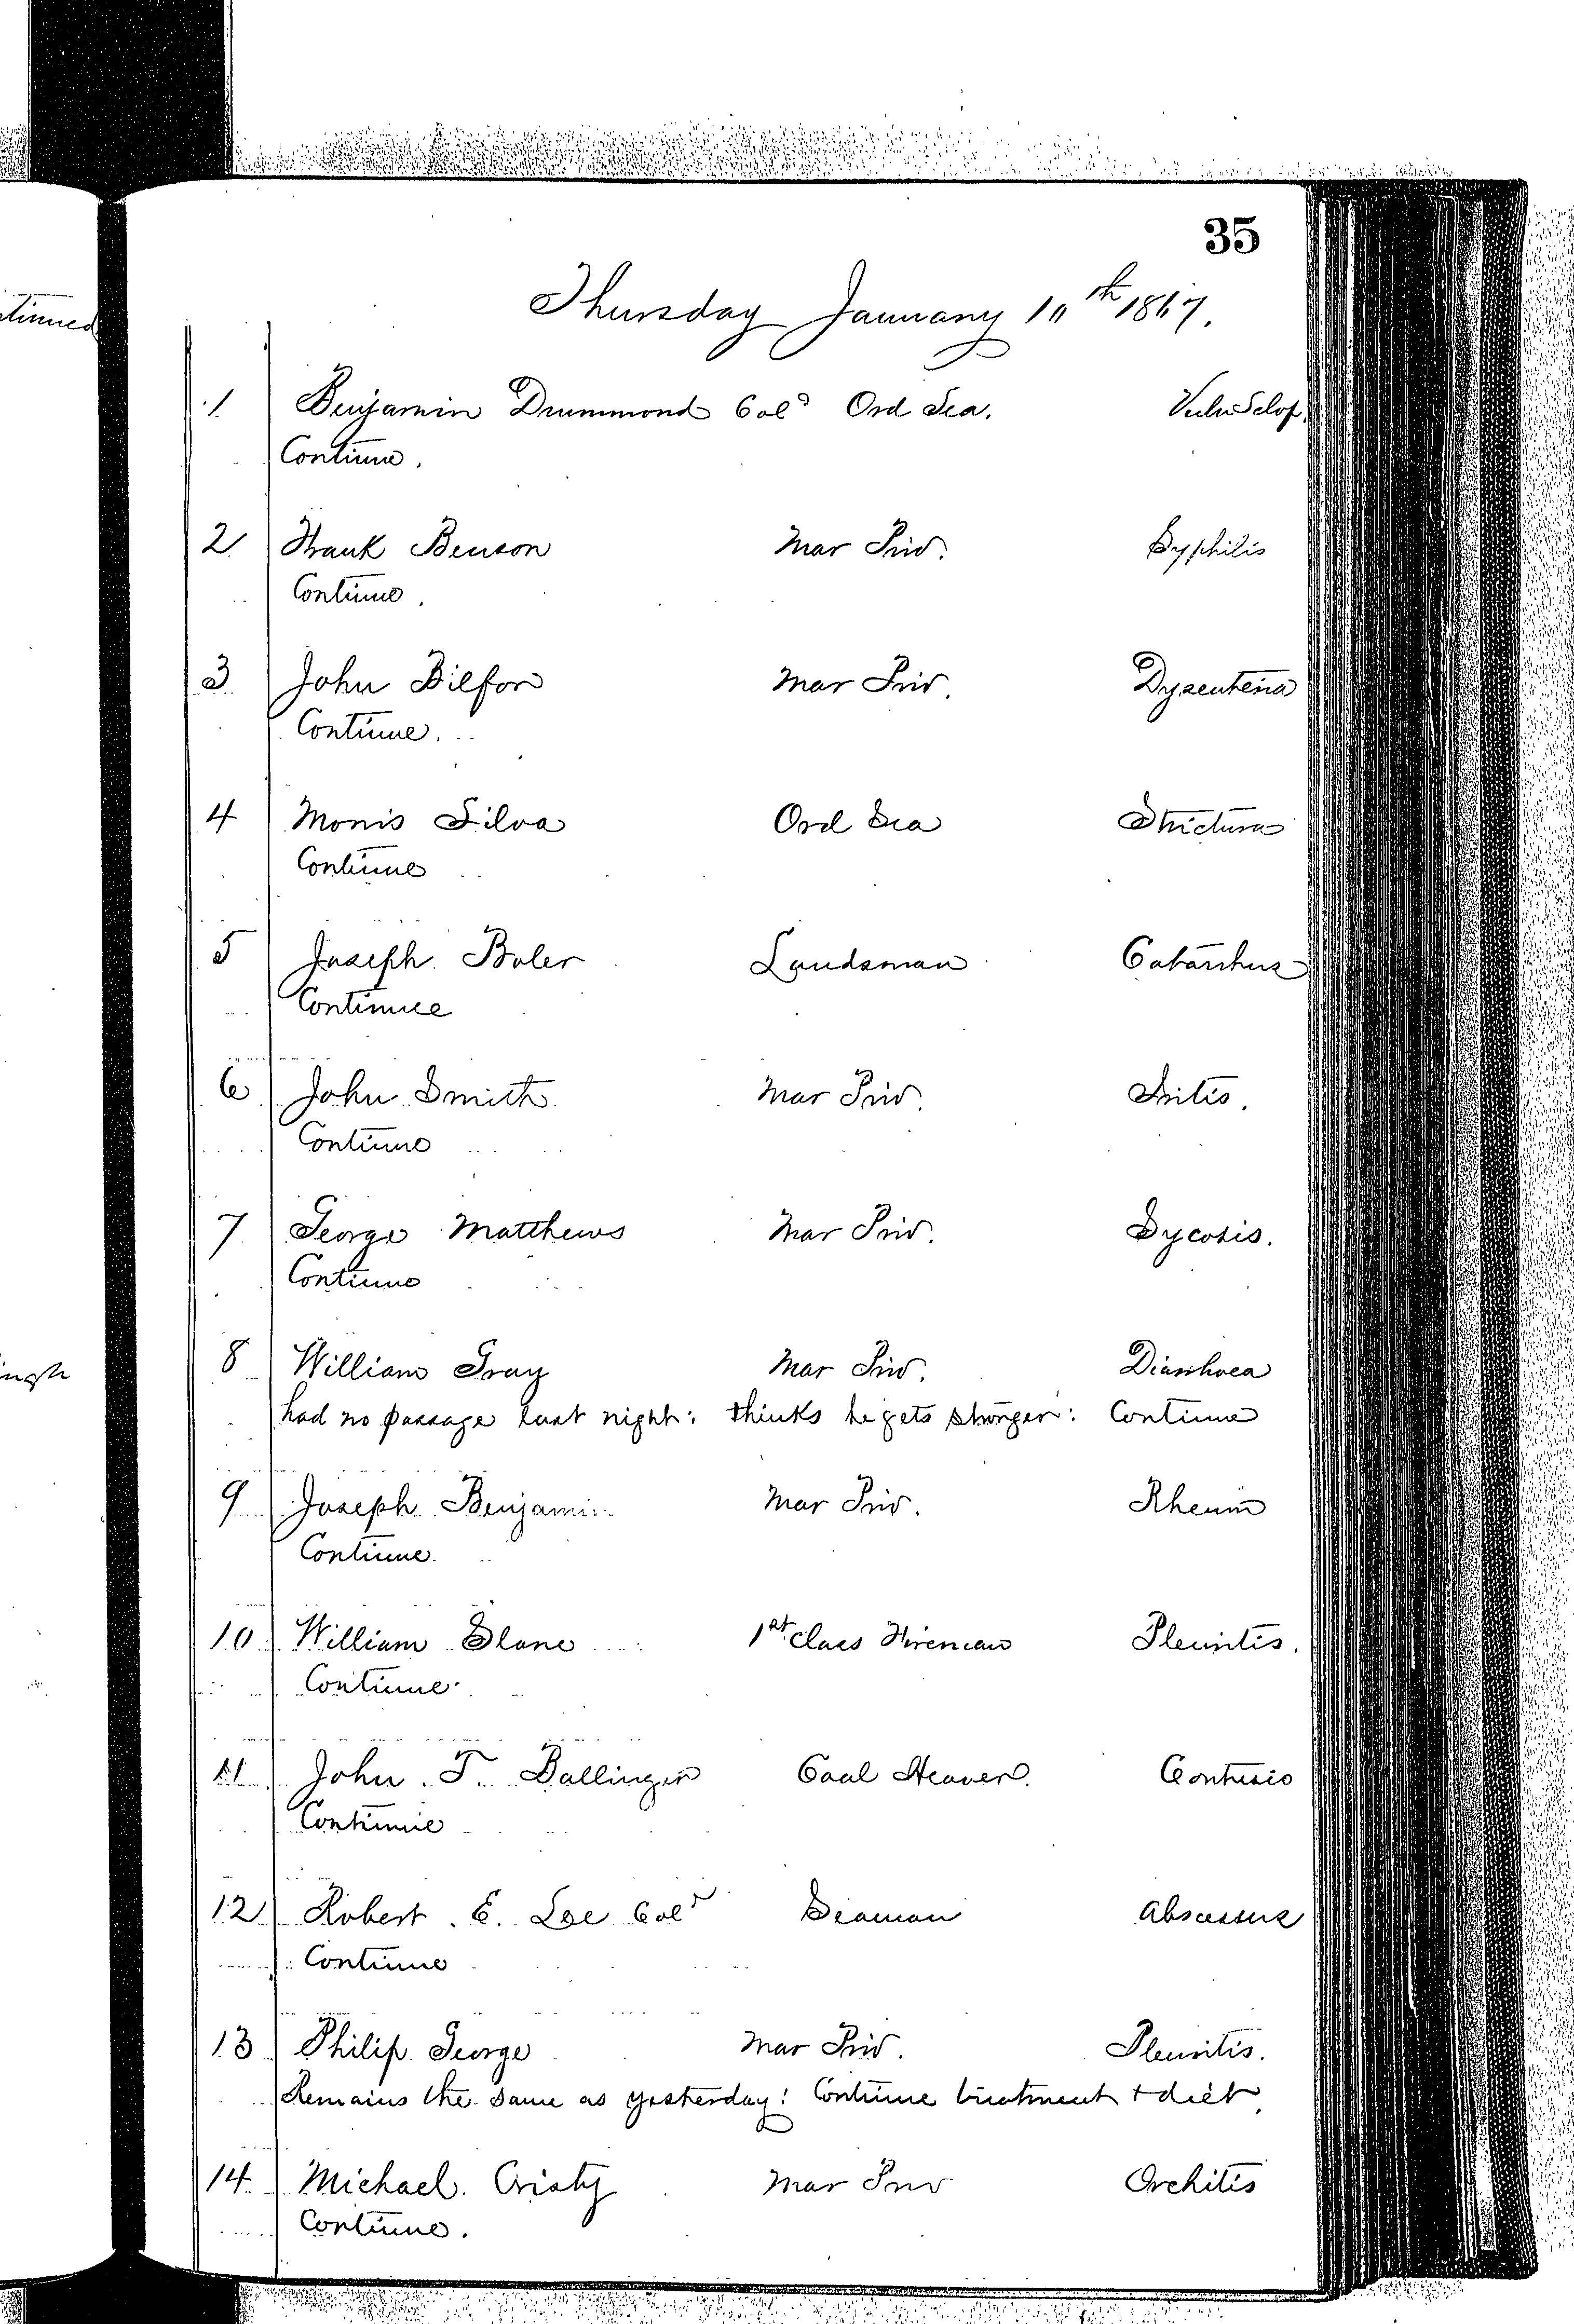 tinued
35
Thursday January 10th 1867.
1 Benjamin Drummond Cold Ord Sea. Vuln Sclop.
Continue.
2 Frank Benson Mar Priv. Syphilis
Continue.
3 John Bilfor Mar Priv. Dysenteria
Continue.
4 Morris Silva Ord Sea Strictura
Continue
5 Joseph Boler Landsman Catarrhus
Continue
6 John Smith Mar Priv. Iritis.
Continue
7 George Matthews Mar Priv. Sycosis.
Continue
8 William Gray Mar Priv. Diarrhoea
had no passage last night: thinks he gets stronger: Continue
9 Joseph Benjamin Mar Priv. Rheum
Continue.
10 William Slane 1st Class Fireman Pleuritis.
Continue
11 John T. Ballinger Coal Heaver. Contusio
Continue
12 Robert E. Lee Cold Seaman Abscessus
Continue
13 Philip George Mar Priv. Pleuritis.
Remains the same as yesterday: Continue treatment + diet.
14 Michael Cristy Mar Priv Orchitis
Continue.